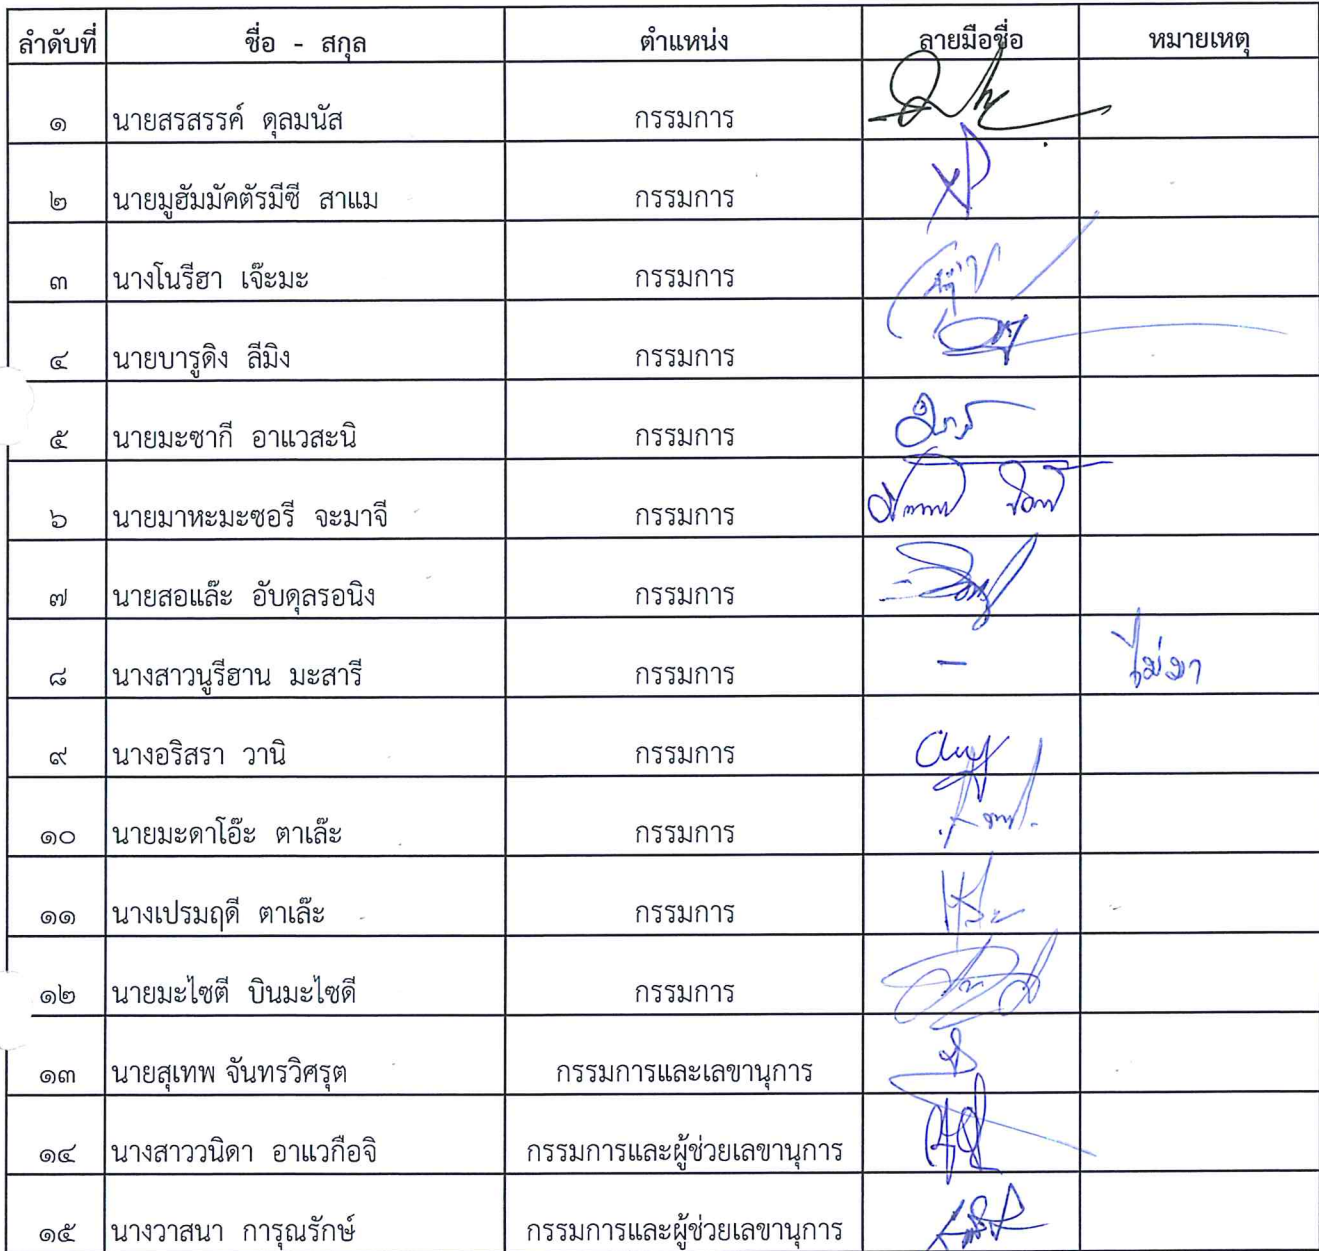 ลำดับที่ ชื่อ - สกุล ตำแหน่ง ลายมือชื่อ หมายเหตุ
๑ นายสรสรรค์ ดุลมนัส กรรมการ
๒ นายมูฮัมมัคตัรมีซี สาแม กรรมการ
๓ นางโนรีฮา เจ๊ะมะ กรรมการ
๔ นายบารูดิง ลีมิง กรรมการ
๕ นายมะซากี อาแวสะนิ กรรมการ
๖ นายมาหะมะซอรี จะมาจี กรรมการ
๗ นายสอแล๊ะ อับดุลรอนิง กรรมการ
๘ นางสาวนูรีฮาน มะสารี กรรมการ - ไม่มา
๙ นางอริสรา วานิ กรรมการ
๑๐ นายมะดาโอ๊ะ ตาเล๊ะ กรรมการ
๑๑ นางเปรมฤดี ตาเล๊ะ กรรมการ
๑๒ นายมะไซตี บินมะไซดี กรรมการ
๑๓ นายสุเทพ จันทรวิศรุต กรรมการและเลขานุการ
๑๔ นางสาววนิดา อาแวกือจิ กรรมการและผู้ช่วยเลขานุการ
๑๕ นางวาสนา การุณรักษ์ กรรมการและผู้ช่วยเลขานุการ